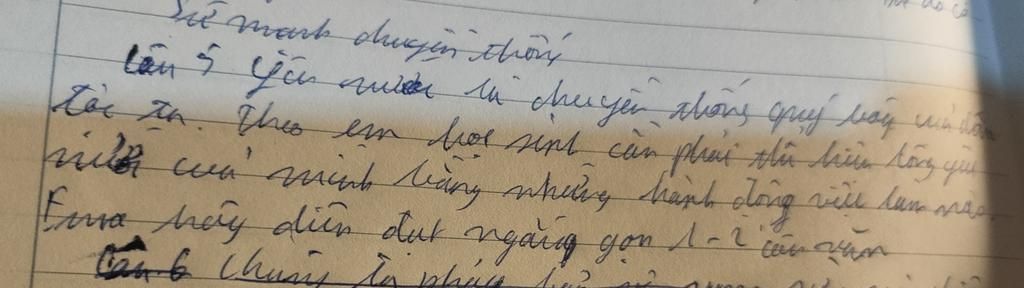 Sức mạnh truyền thống
Câu 5 Yêu nước là truyền thống quý báu của dân
tộc ta. Theo em học sinh cần phải thể hiện lòng yêu
nước của mình bằng những hành động việc làm nào.
Em hãy diễn đạt ngắn gọn 1-2 câu văn
Câu 6 Chúng ta phải